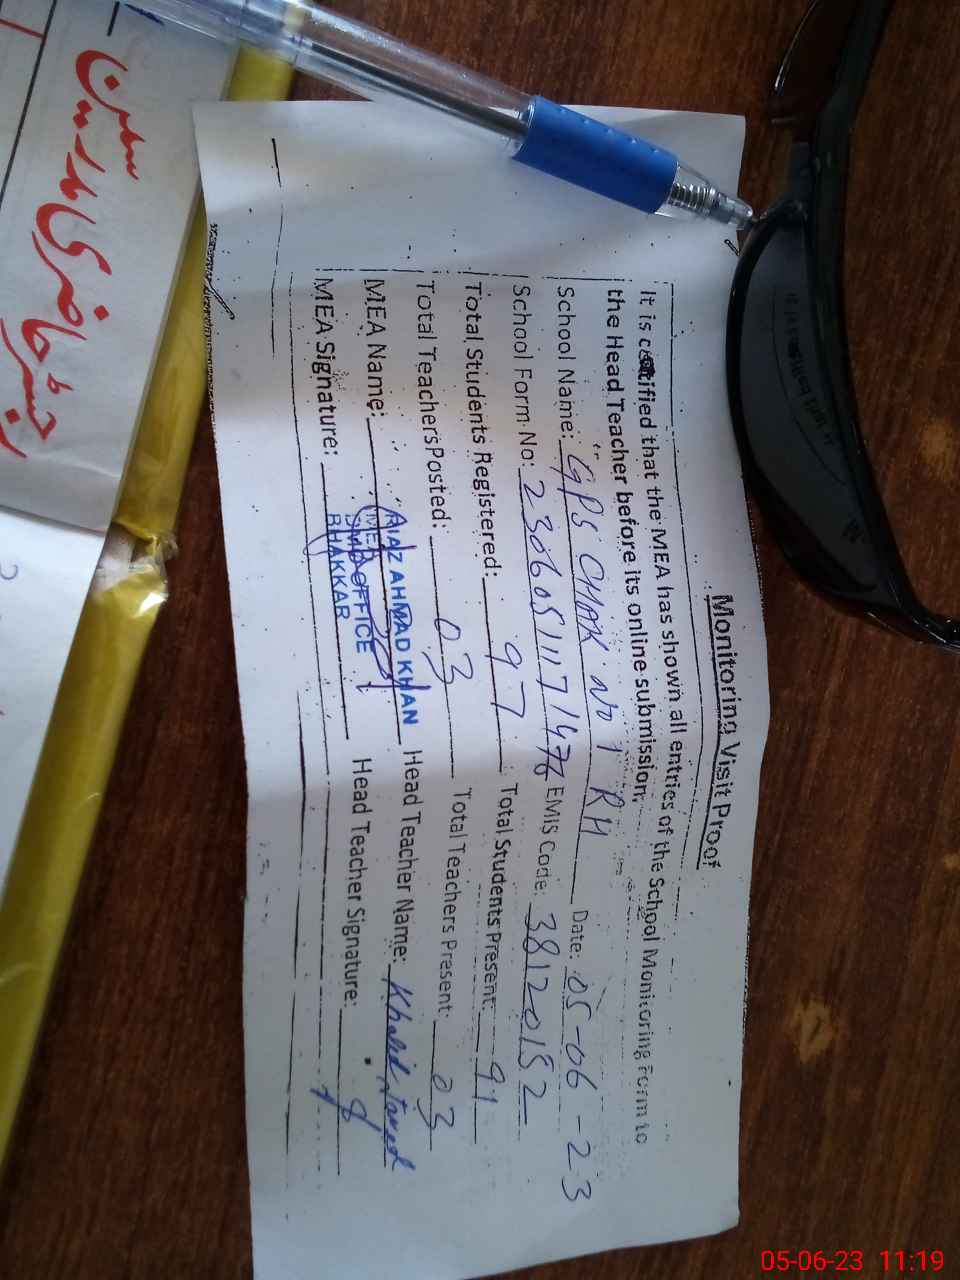 Monitoring Visit Proof
It is certified that the MEA has shown all entries of the School Monitoring Form to
the Head Teacher before its online submission.
School Name: GPS CHAK NO 1 RH Date: 05-06-23
School Form No: EMIS Code: 38120152
Total Students Registered: 97 Total Students Present: 91
Total Teachers Posted: 03 Total Teachers Present: 03
MEA Name: RIAZ AHMAD KHAN Head Teacher Name: Khalid Javed
MEA OFFICE
BHAKKAR
MEA Signature: Head Teacher Signature:
05-06-23 11:19